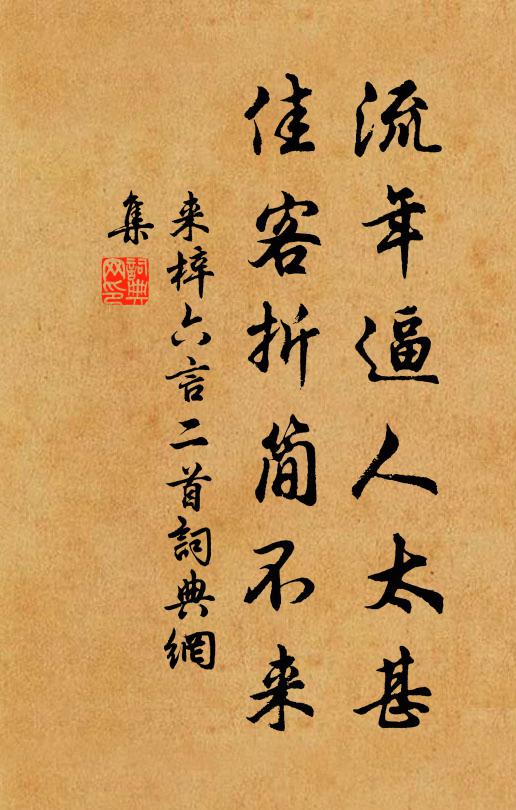 流年逼人太甚
佳客折简不来
来梓六言二首詞典網
集
詞典网印